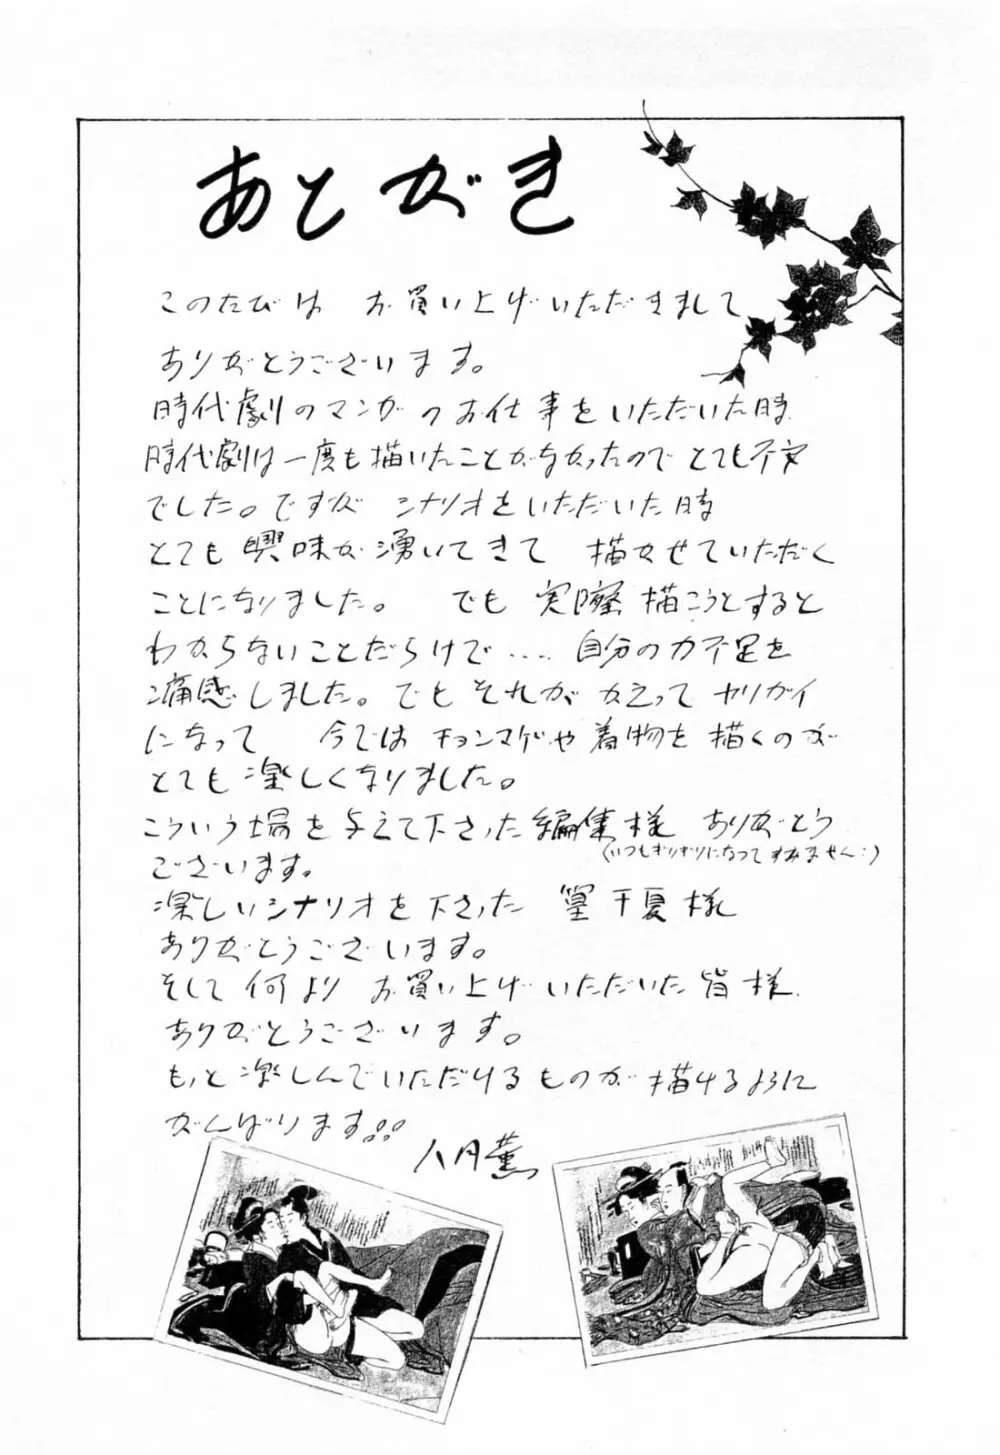 あとがき
このたびは お買い上げいただきまして
ありがとうございます。
時代劇のマンガのお仕事をいただいた時
時代劇は一度も描いたことがなかったのでとても不安
でした。ですが シナリオをいただいた時
とても興味が湧いてきて 描かせていただく
ことになりました。 でも 実際描こうとすると
わからないことだらけで.... 自分の力不足を
痛感しました。でもそれが かえって ヤリガイ
になって 今では チョンマゲや着物を描くのが
とても楽しくなりました。
こういう場を与えて下さった編集様 ありがとう
ございます。
(いつもぎりぎりになってすみません:)
楽しいシナリオを下さった 篁千夏様
ありがとうございます。
そして何より お買い上げいただいた皆様
ありがとうございます。
もっと楽しんでいただけるものが描けるように
がんばります!!
八月薫